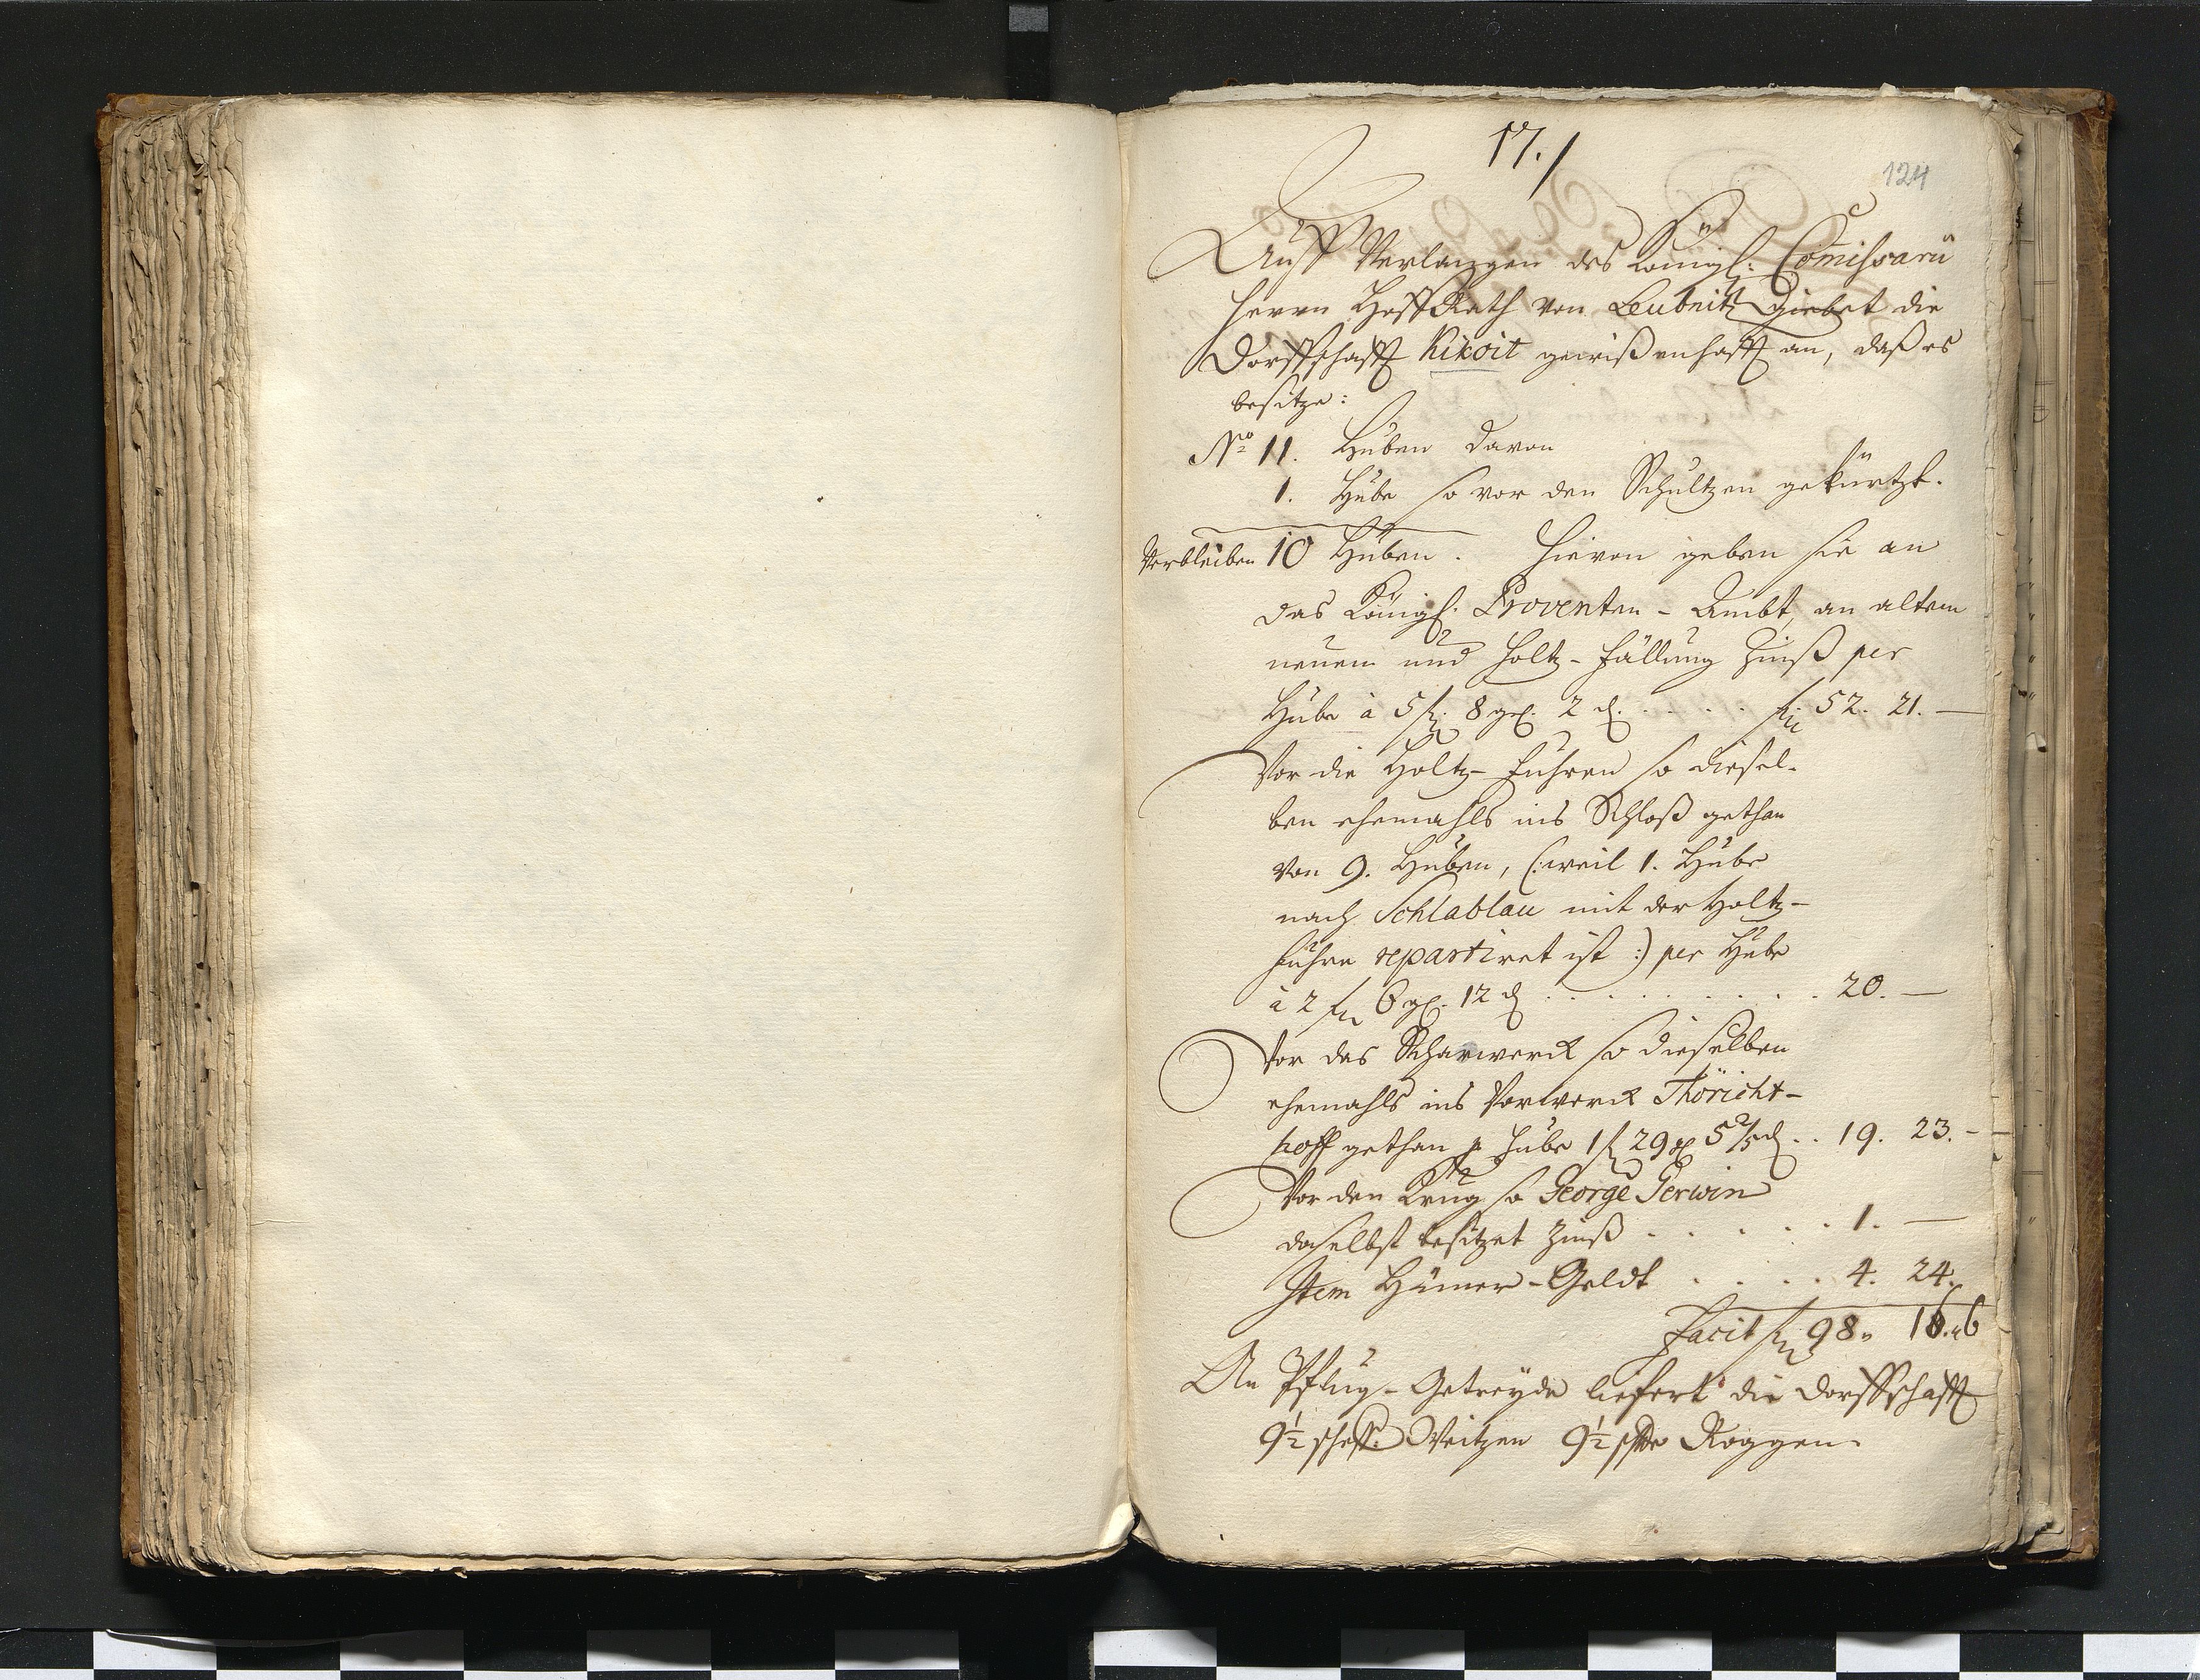 17./
124
Auff Verlangen des Königl: Com̄issarii
Herrn HoffRath von Leubnitz Giebet die
Dorffschafft Kikoit gewißenhafft an, daß es
besitze:
No 11. Huben davon
1. Hube so vor den Schultzen gekürtzt.
Verbleiben 10 Huben. Hievon geben sie an
das Königl. Proventen-Ambt, an altem
neuem und Holtz-fällung Zinß per
Hube à 5 fl. 8 gl. 2 d. . . . . fl. 52. 21. —
Vor die Holtz-fuhren so diesel-
ben ehemahls ins Schloß gethan
von 9. Huben, (: weil 1. Hube
nach Schlablau mit der Holtz-
fuhre repartiret ist :) per Hube
à 2 fl 6 gl. 12 d . . . . . . . . . 20. —
Vor das Scharwerck so dieselben
ehemahls ins Vorwerck Thöricht-
hoff gethan p Hube 1 fl 29 gl 5 2/5 d . . 19. 23. -
Vor den Krug so George Gerwin
daselbst besitzet Zinß . . . . . . 1. —
Item Hüner-Geldt . . . . 4. 24.
Facit fl 98. 16. 6
An Pflug-Getreyde liefert die Dorffschafft
9½ scheff. Weitzen 9½ Roggen